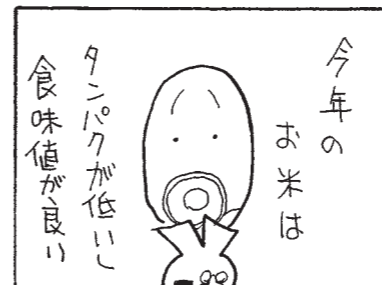 今年の
お米は
タンパクが低いし
食味値が良い